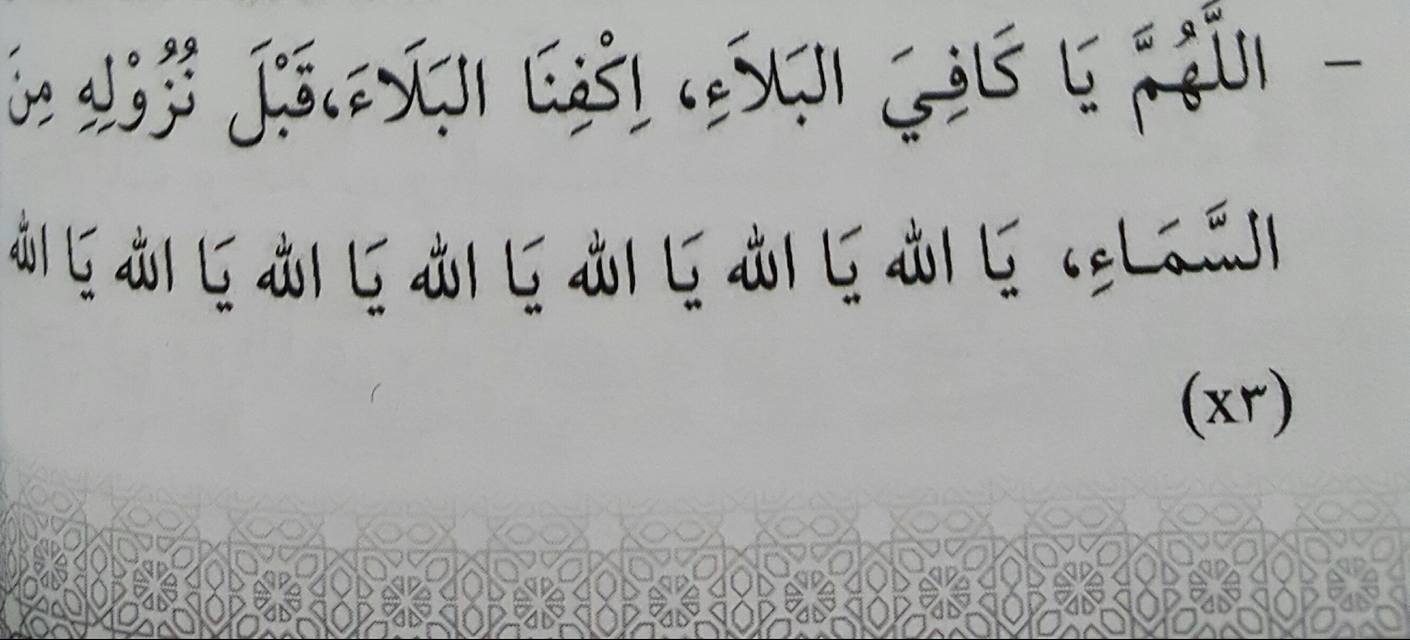 - اللَّهُمَّ يَا كَافِيَ البَلاَءِ، اِكْفِنَا البَلَاءَ،قَبْلَ نُزُوْلِهِ مِنَ
السَّمَاءِ، يَا الله يَا الله يَا الله يَا الله يَا الله يَا الله يَا الله
(x٣)